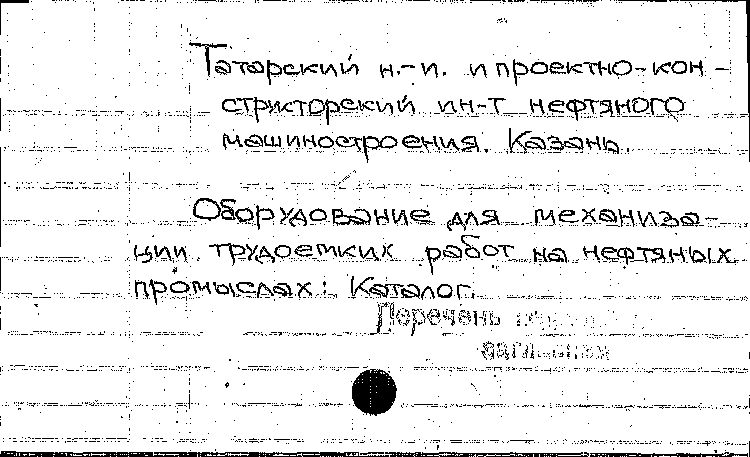 Татарский н.-и. и проектно-кон-
структорский ин-т нефтяного
машиностроения. Казань.
Оборудование для механиза-
ции трудоемких работ на нефтяных
промыслах: Каталог.
Перечень